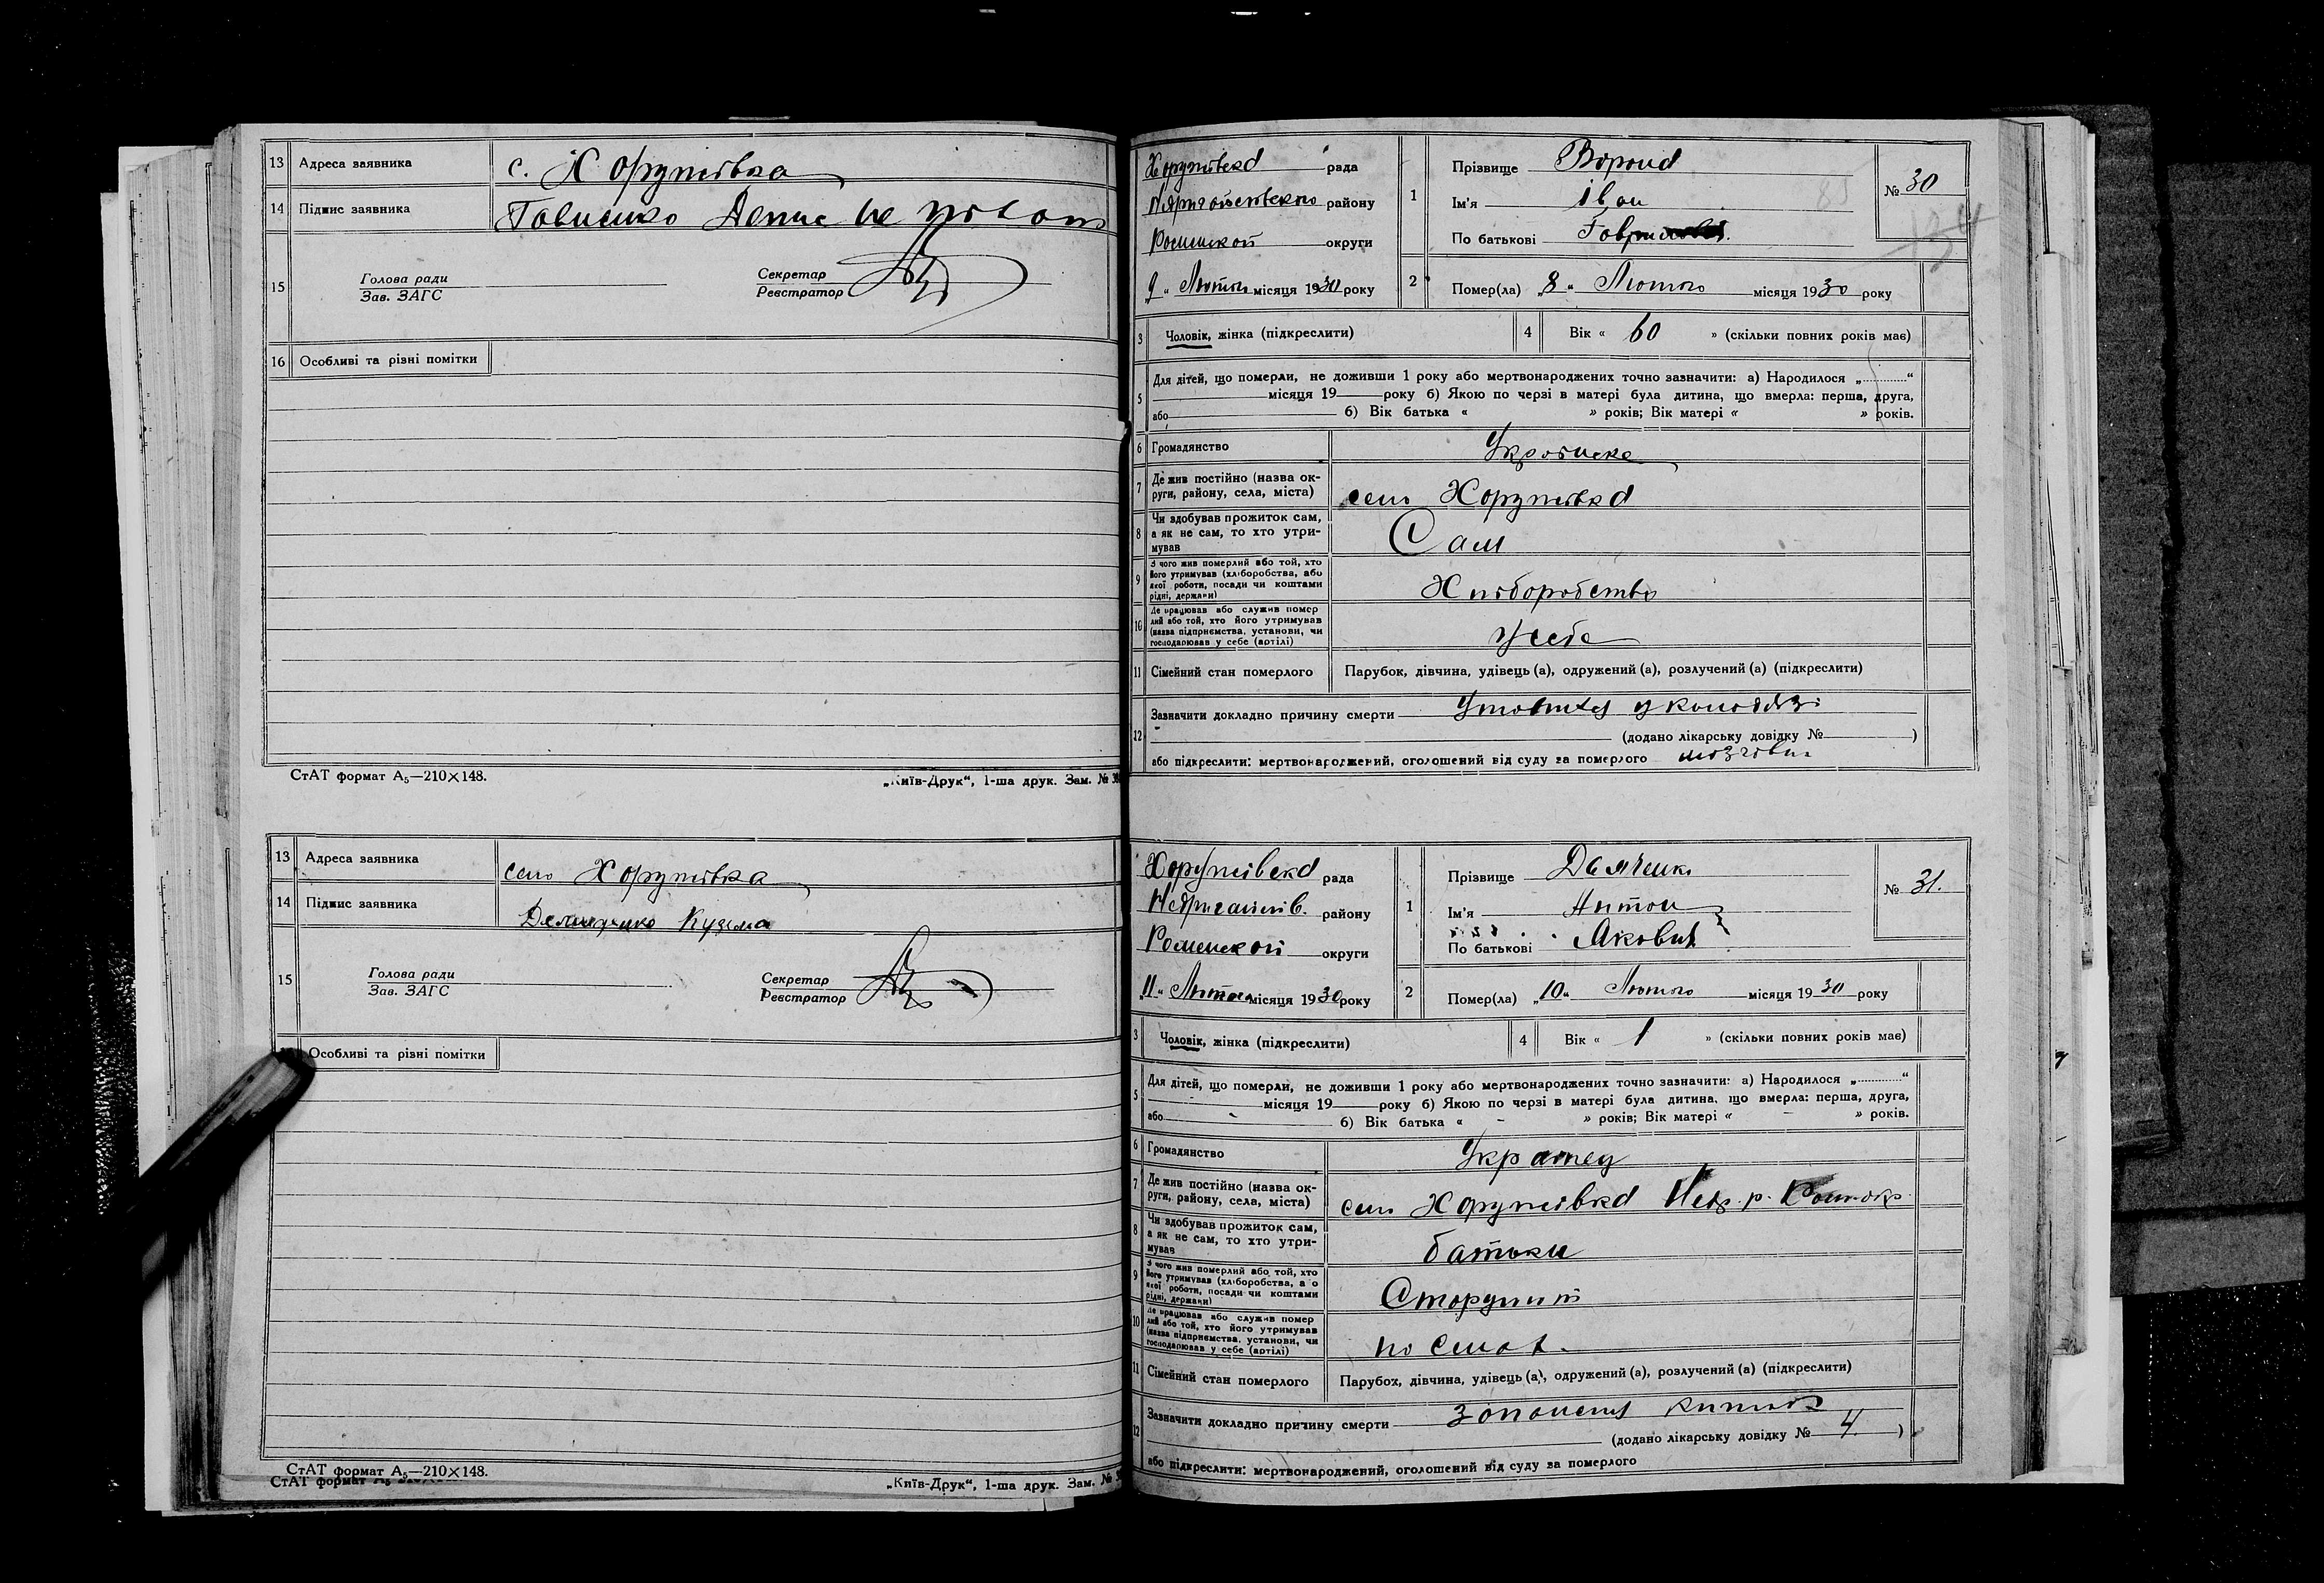 13 Адреса заявника с. Хоружівка
14 Підпис заявника Денис не
15 Голова ради Секретар
Зав. ЗАГС Реєстратор
16 Особливі та різні помітки
СтАТ формат А5—210×148. „Київ-Друк“, 1-ша друк. Зам. №
13 Адреса заявника село Хоружівка
14 Підпис заявника Кузьма
15 Голова ради Секретар
Зав. ЗАГС Реєстратор
Особливі та різні помітки
СтАТ формат А5—210×148.
СтАТ формат А5 „Київ-Друк“, 1-ша друк. Зам. №
Хоружівска рада
району
Роменской округи
9 „ Лютого місяця 1930 року
1 Прізвище Ворона
Ім'я Іван
По батькові
№ 30
2 Помер(ла) „8“ Лютого місяця 1930 року
3 Чоловік, жінка (підкреслити) 4 Вік « 60 » (скільки повних років має)
5 Для дітей, що померли, не доживши 1 року або мертвонароджених точно зазначити: а) Народилося „ “
місяця 19 року б) Якою по черзі в матері була дитина, що вмерла: перша, друга,
або б) Вік батька « » років; Вік матері « » років.
6 Громадянство
7 Де жив постійно (назва ок-
руги, району, села, міста) село Хоружівка
8 Чи здобував прожиток сам,
а як не сам, то хто утри-
мував Сам
9 З чого жив померлий або той, хто
його утримував (хліборобства, або
якої роботи, посади чи коштами
рідні, держави) Хліборобство
10 Де працював або служив помер
лий або той, хто його утримував
(назва підприємства, установи, чи
господарював у себе (артілі) у себе
11 Сімейний стан померлого Парубок, дівчина, удівець (а), одружений (а), розлучений (а) (підкреслити)
12 Зазначити докладно причину смерти Утопився у колодязі
(додано лікарську довідку № )
або підкреслити: мертвонароджений, оголошений від суду за померлого
Хоружівска рада
Недригайлів. району
Роменской округи
„11“ Лютого місяця 1930 року
1 Прізвище
Ім'я Антон
По батькові Якович
№ 31.
2 Помер(ла) „10“ Лютого місяця 1930 року
3 Чоловік, жінка (підкреслити) 4 Вік « 1 » (скільки повних років має)
5 Для дітей, що померли, не доживши 1 року або мертвонароджених точно зазначити: а) Народилося „ “
місяця 19 року б) Якою по черзі в матері була дитина, що вмерла: перша, друга,
або б) Вік батька « – » років; Вік матері « – » років.
6 Громадянство
7 Де жив постійно (назва ок-
руги, району, села, міста) село Хоружівка Недр. р.
8 Чи здобував прожиток сам,
а як не сам, то хто утри-
мував батьки
9 З чого жив померлий або той, хто
його утримував (хліборобства, або
якої роботи, посади чи коштами
рідні, держави)
10 Де працював або служив помер
лий або той, хто його утримував
(назва підприємства, установи, чи
господарював у себе (артілі)
11 Сімейний стан померлого Парубок, дівчина, удівець (а), одружений (а), розлучений (а) (підкреслити)
12 Зазначити докладно причину смерти
(додано лікарську довідку № 4. )
або підкреслити: мертвонароджений, оголошений від суду за померлого